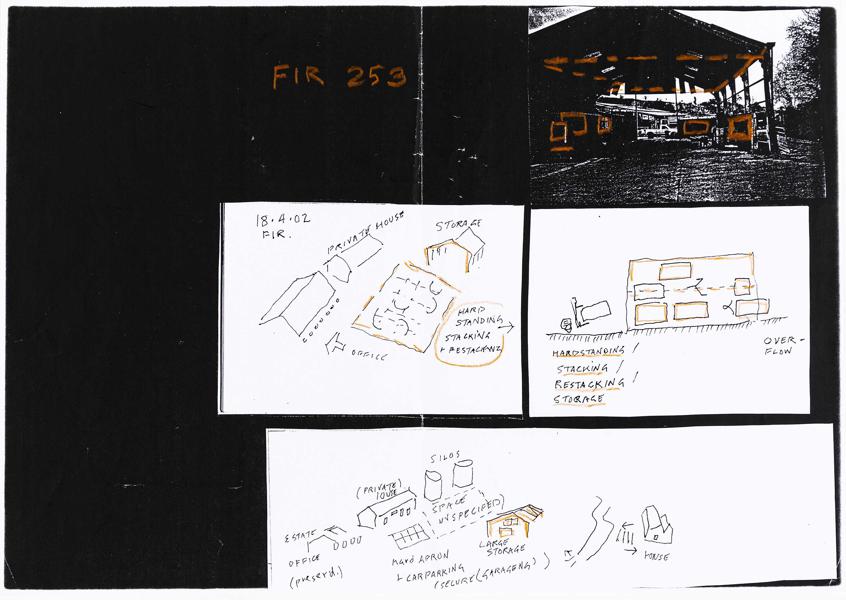 FIR 253
18.4.02
FIR.
PRIVATE HOUSE
STORAGE
HARD
STANDING
STACKING
+ RESTACKING
OFFICE
HARDSTANDING /
STACKING /
RESTACKING /
STORAGE
OVER-
FLOW
SILOS
(PRIVATE)
HOUSE
SPACE
UNSPECIFIED
ESTATE
OFFICE
(preserd.)
HARD APRON
+ CARPARKING
(SECURE (GARAGENG))
LARGE
STORAGE
HOUSE